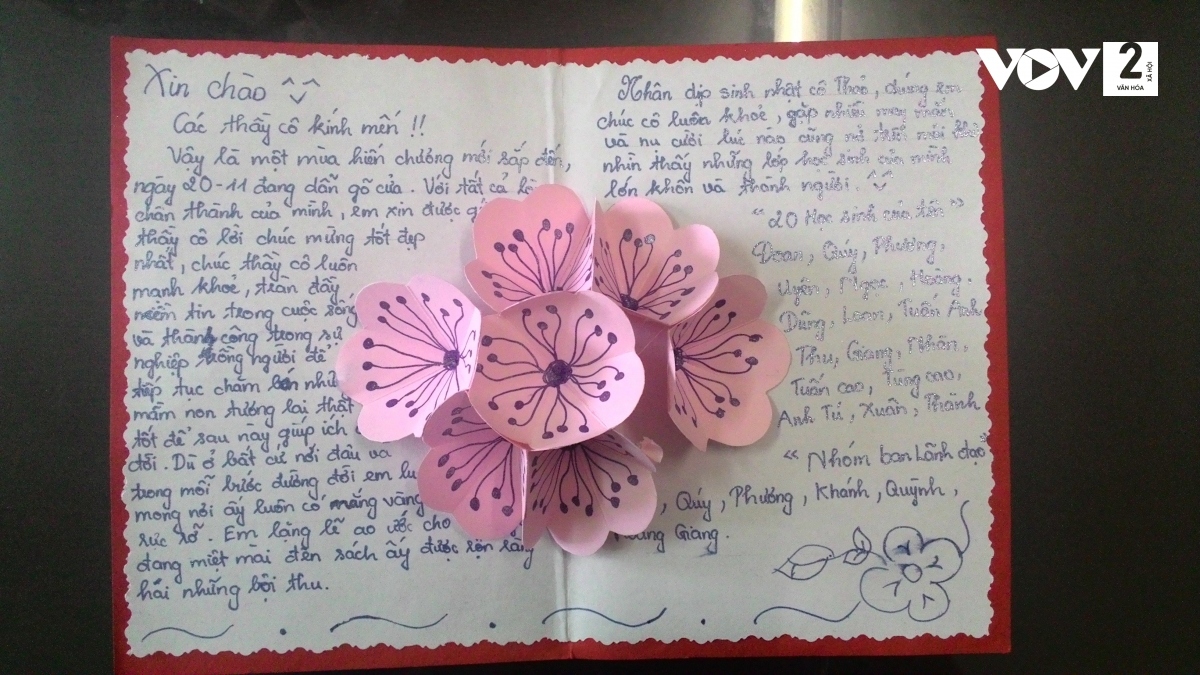 Xin chào
Các thầy cô kính mến !!
Vậy là một mùa hiến chương mới sắp đến,
ngày 20-11 đang dần gõ cửa. Với tất cả
chân thành của mình, em xin được
thầy cô lời chúc mừng tốt đẹp
nhất, chúc thầy cô luôn
mạnh khoẻ, tràn đầy
niềm tin trong cuộc sống
và thành công trong sự
nghiệp trồng người để
tiếp tục chăm bón
mầm non tương lai thật
tốt để sau này giúp ích
đời. Dù ở bất cứ nơi đâu và
trong mỗi bước đường đời em
mong nơi ấy luôn có nắng vàng
rực rỡ. Em lặng lẽ ao ước cho
đang miệt mai đèn sách ấy được
hái những bội thu.
Nhân dịp sinh nhật cô Thảo, chúng em
chúc cô luôn khoẻ, gặp nhiều may mắn
và nụ cười lúc nào cũng nở trên môi
nhìn thấy những lớp học sinh của mình
lớn khôn và thành người.
"20 Học sinh của tôi"
Đoan, Quý, Phương,
Uyên, Ngọc, Hoàng,
Dũng, Loan, Tuấn Anh
Thu, Giang, Nhân,
Tuấn cao, Tùng cao,
Anh Tú, Xuân, Thành
"Nhóm ban Lãnh đạo"
, Quý, Phương, Khánh, Quỳnh,
Giang.
VOV2
VĂN HÓA
XÃ HỘI